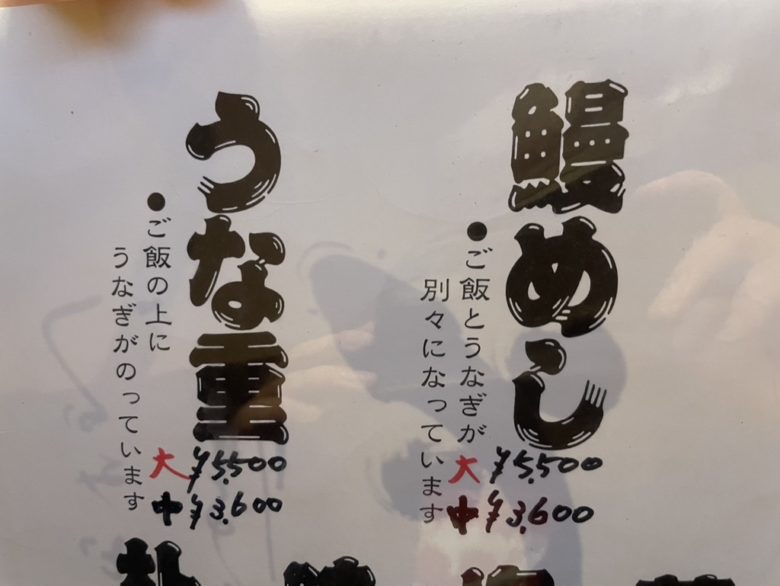 鰻めし
●ご飯とうなぎが
別々になっています
大 ¥5,500
中 ¥3,600
うな重
●ご飯の上に
うなぎがのっています
大 ¥5,500
中 ¥3,600